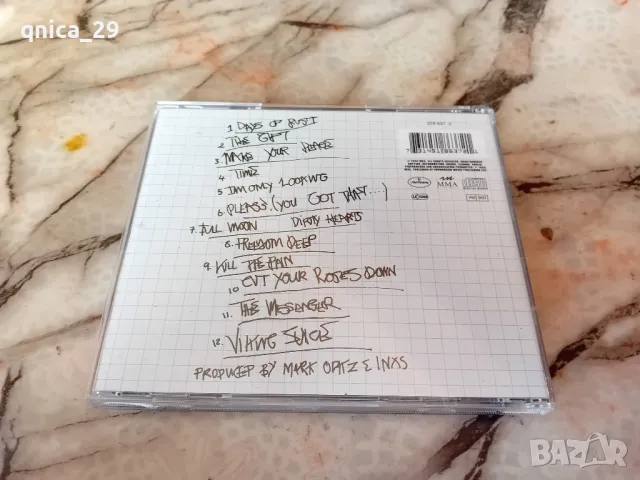 qnica_29
1 DAYS OF RUST
2 THE GIFT
3 MAKE YOUR PEACE
4 TIME
5 I'M ONLY LOOKING
6. PLEASE (YOU GOT THAT...)
7. FULL MOON DIRTY HEARTS
8. FREEDOM DEEP
9. KILL THE PAIN
10 CUT YOUR ROSES DOWN
11. THE MESSENGER
12. VIKING JUICE
PRODUCED BY MARK OPITZ & INXS
MMA
BAZAR